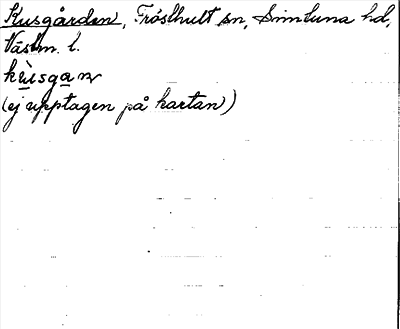 Kusgården, Fröslhult sn, Simtuna hd,
Västm. l.
kùsgaṇ
(ej upptagen på kartan)